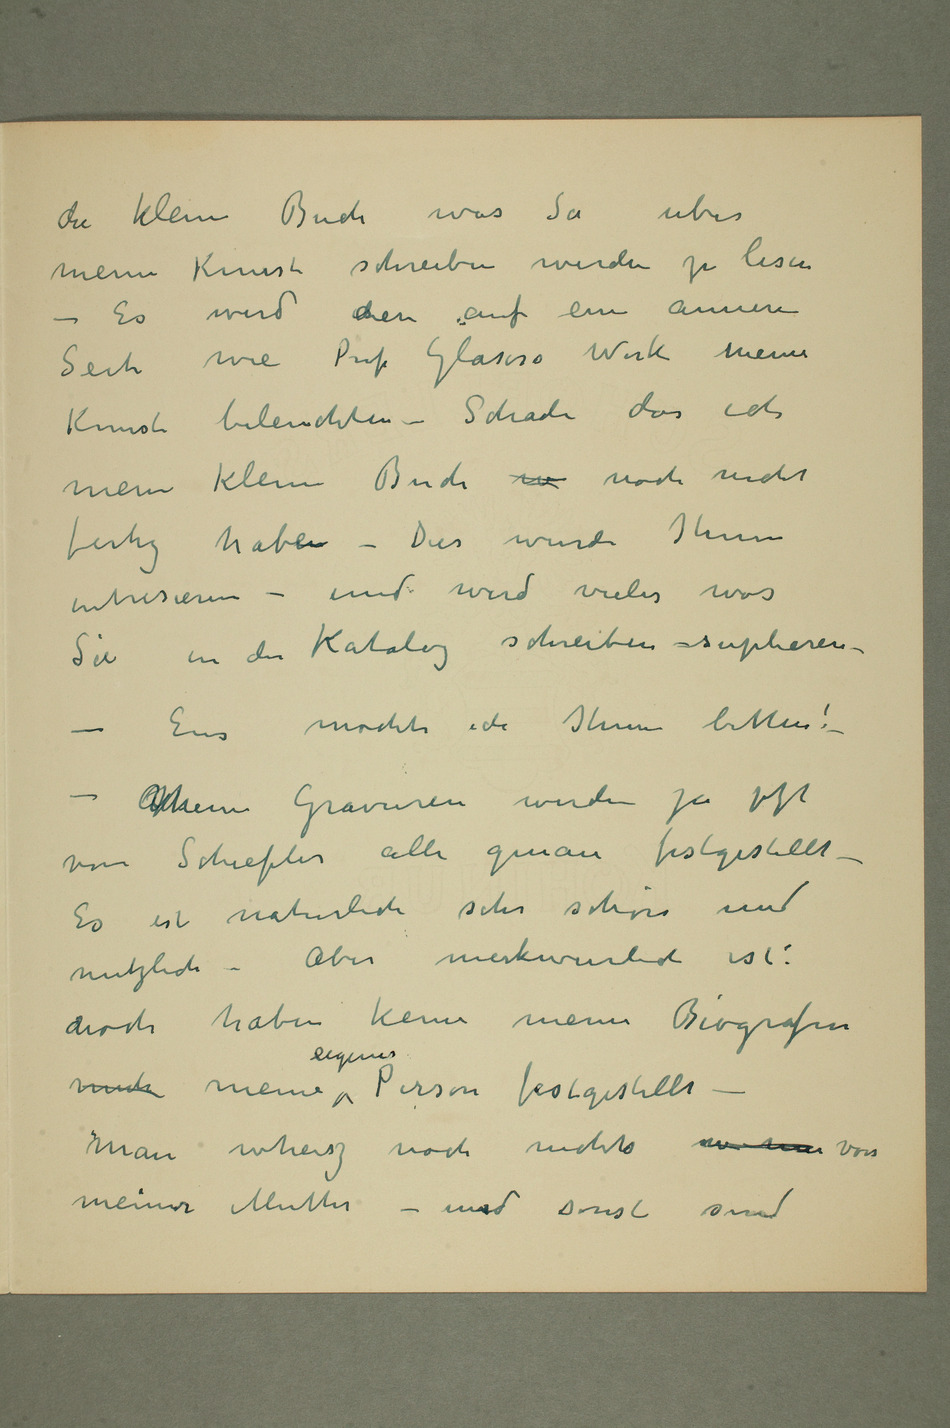 die kleine Buch was Sie uber
meine Kunst schreiben werden zu lesen
– Es wird den auf eine annere
Seite wie Prof Glasers Werk meine
Kunst beleuchten – Schade das ich
meine kleine Buch noch nicht
fertig haben – Dies wurde Ihnen
intresieren – und wird vieles was
Sie in den Katalog schreiben – suplieren –
– Eins mochte ich Ihnen bitten! –
– Meine Gravuren werden ja jetzt
von Schiefler alle genau festgestellt –
Es ist naturlich sehr schön und
nutzlich – Aber merkwurlich ist:
noch haben keine meine Biografen
meine eigenes Person festgestellt –
Man wheisz noch nichts von
meiner Mutter – und sonst sind